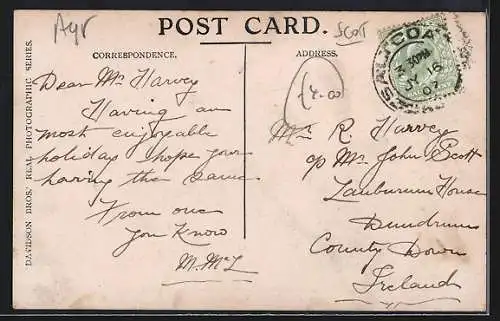 Ayr
SCOT
POST CARD.
CORRESPONDENCE.
ADDRESS.
DAVIDSON BROS: REAL PHOTOGRAPHIC SERIES.
SALTCOATS
JY 16
07
£4.00
Dear Mr Harvey
Having an
most enjoyable
holiday hope your
having the same
From one
you Know
M. McL
Mr R. Harvey
c/o Mr John Scott
Lauburnum House
Dundrum
County Down
Ireland